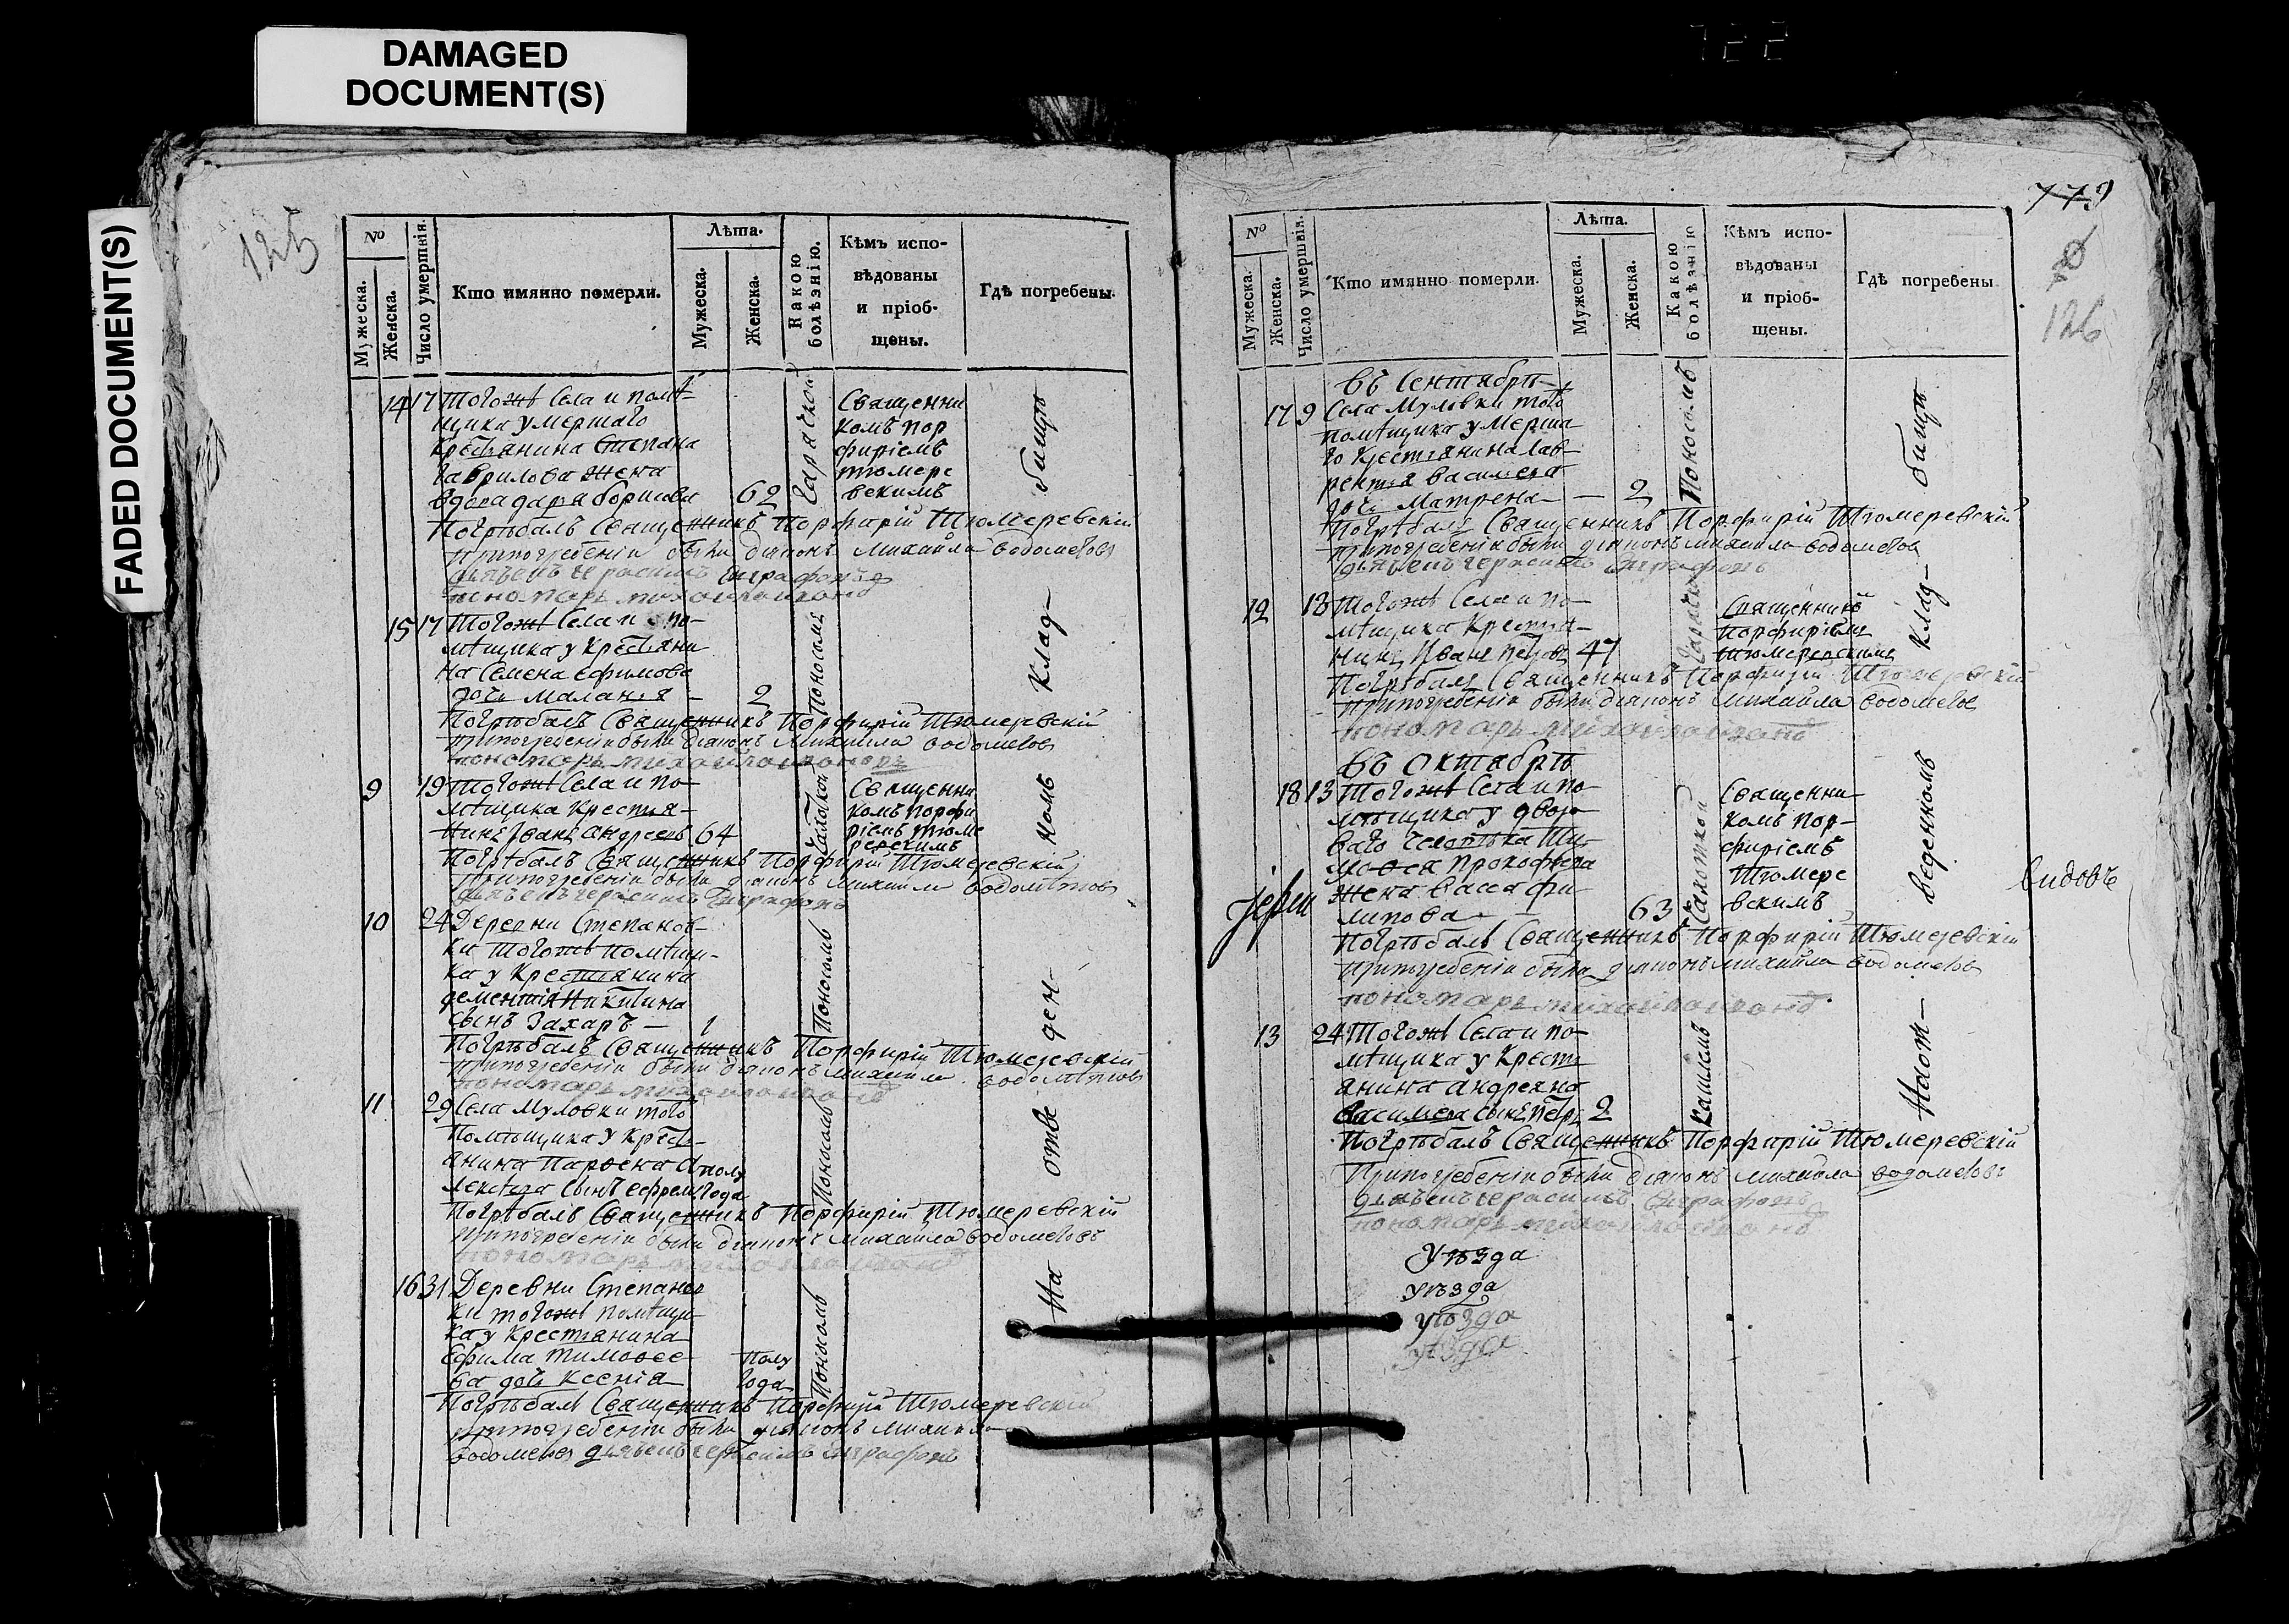 DAMAGED
DOCUMENT(S)
FADED DOCUMENT(S)
722
125
№
Мужеска.
Женска.
Число умершія.
Кто имянно померли.
Лѣта.
Мужеска.
Женска.
Какою болѣзнію.
Кѣмъ испо-
вѣдованы
и пріоб-
щены.
Гдѣ погребены.
14 17 Тогожъ Села и помѣ-
щика умершаго
Крестьянина Степана
Гаврилова жена
вдова дарья борисова 62
Горячкой
Священни
комъ пор
фиріемъ
тюмере
вскимъ
Погрѣбалъ Священникъ Порфирій Тюмеревскій
при погребеніи были діаконъ Михайла водометов
дьячекъ герасимъ
пономарь
15 17 Тогожъ Села и по-
мѣщика у Крестьяни
на Семена Ефимова
дочь Маланья 2
Поносомъ
Погрѣбалъ Священникъ Порфирій Тюмеревскій
при погребеніи были діаконъ Михайла водометов
пономарь
9 19 Тогожъ Села и по-
мѣщика Крестья-
нинъ Иванъ андреевъ 64
Чахоткой
Священни
комъ порфи
ріемъ тюме
ревскимъ
Погрѣбалъ Священникъ Порфирій Тюмеревскій
при погребеніи были діаконъ Михайла водометов
дьячекъ герасимъ
10 24 Деревни Степанов-
ки тогожъ помѣщи-
ка у Крестьянина
дементія Никитина
сынъ Захаръ 1
Поносомъ
Погрѣбалъ Священникъ Порфирій Тюмеревскій
при погребеніи были діаконъ Михайла водометов
пономарь
11 29 Села Муловки того
Помѣщика у Кресть-
янина Парфена А
лексѣева сынъ ефремъ полу
года
Поносомъ
Погрѣбалъ Священникъ Порфирій Тюмеревскій
при погребеніи были діаконъ Михайла водометовъ
пономарь
16 31 Деревни Степанов
ки тогожъ помѣщи-
ка у Крестьянина
Ефима тимофее-
ва дочь Ксенія полу
года
Поносомъ
Погрѣбалъ Священникъ Порфирій Тюмеревскій
при погребеніи были діаконъ Михайла
водометов дьячекъ герасимъ
На отве ден- номъ клад- бищѣ
779
126
№
Мужеска.
Женска.
Число умершія.
Кто имянно померли.
Лѣта.
Мужеска.
Женска.
Какою болѣзнію
Кѣмъ испо-
вѣдованы
и пріоб-
щены.
Гдѣ погребены
въ Сентябрѣ
17 9 Села Муловки того
помѣщика умерша
го Крестьянина лав-
рентья васильева
дочь Матрена — 2
Поносомъ
Погрѣбалъ Священникъ Порфирій Тюмеревскій
при погребеніи были діаконъ михайла водометов
дьячекъ герасимъ
12 18 Тогожъ Села и по-
мѣщика Крестья-
нинъ Иванъ петровъ 47
Горячкой
Священникомъ
Порфиріемъ
Тюмеревскимъ
Погрѣбалъ Священникъ Порфирій Тюмеревскій
при погребеніи были діаконъ Михайла водометов
пономарь
въ Октябрѣ
18 13 Тогожъ Села и по-
мѣщика у дворо-
ваго человѣка Ти-
мофея Прокофьева
жена васса фи-
липова 63
Чахоткой
Священни-
комъ пор-
фиріемъ
Тюмере
вскимъ
Погрѣбалъ Священникъ Порфирій Тюмеревскій
при погребеніи были діаконъ михайла водометов
пономарь
13 24 Тогожъ Села и по-
мѣщика у Крестъ
янина андреяна
васильева сынъ петръ 2
кашлемъ
Погрѣбалъ Священникъ Порфирій Тюмеревскій
При погребеніи были діаконъ михайла водометовъ
дьячекъ герасимъ
пономарь
Наот- веденномъ клад- бищѣ
Іерей
видовъ
Уѣзда
уѣзда
уѣзда
уѣзда